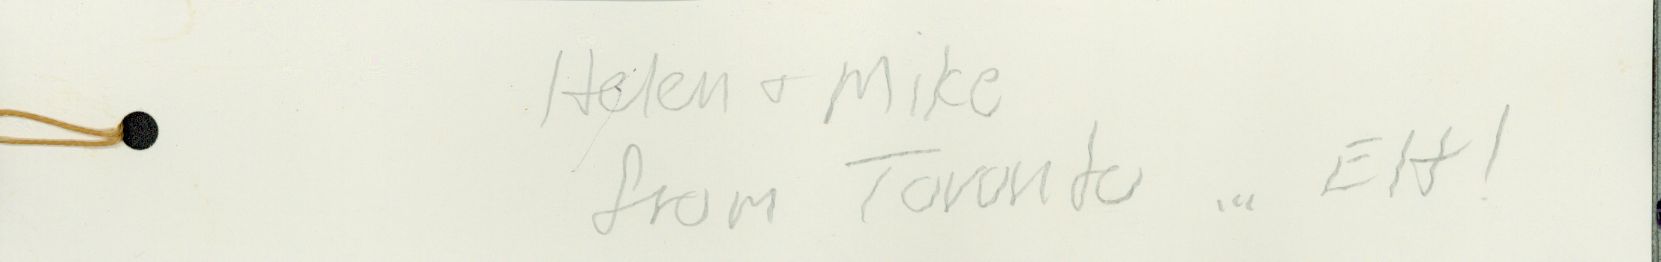 Helen + Mike
from Toronto ... EH!